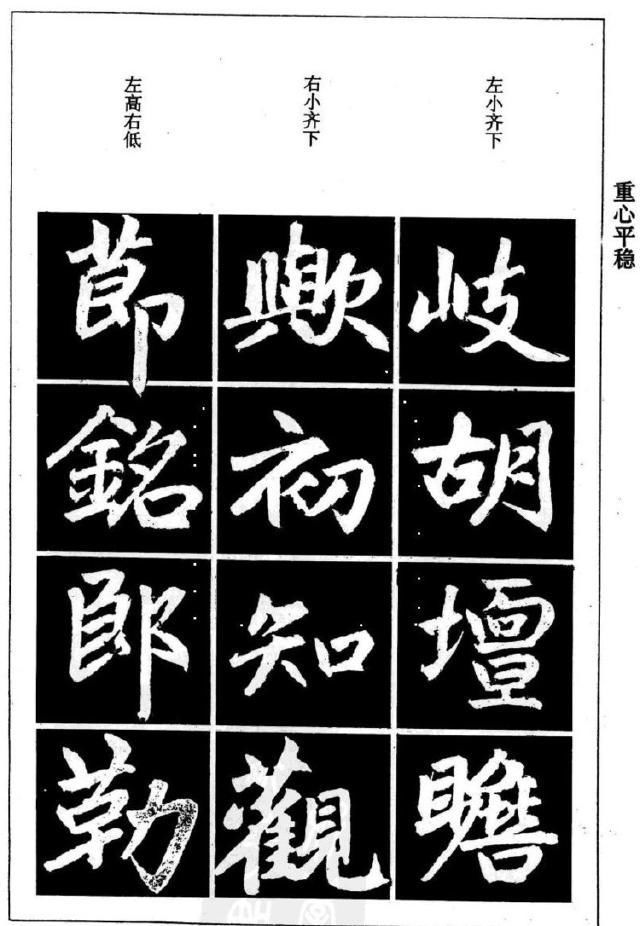 重心平稳
左小齐下
岐胡壇瞻
右小齐下
歟初知觀
左高右低
節銘郎勒